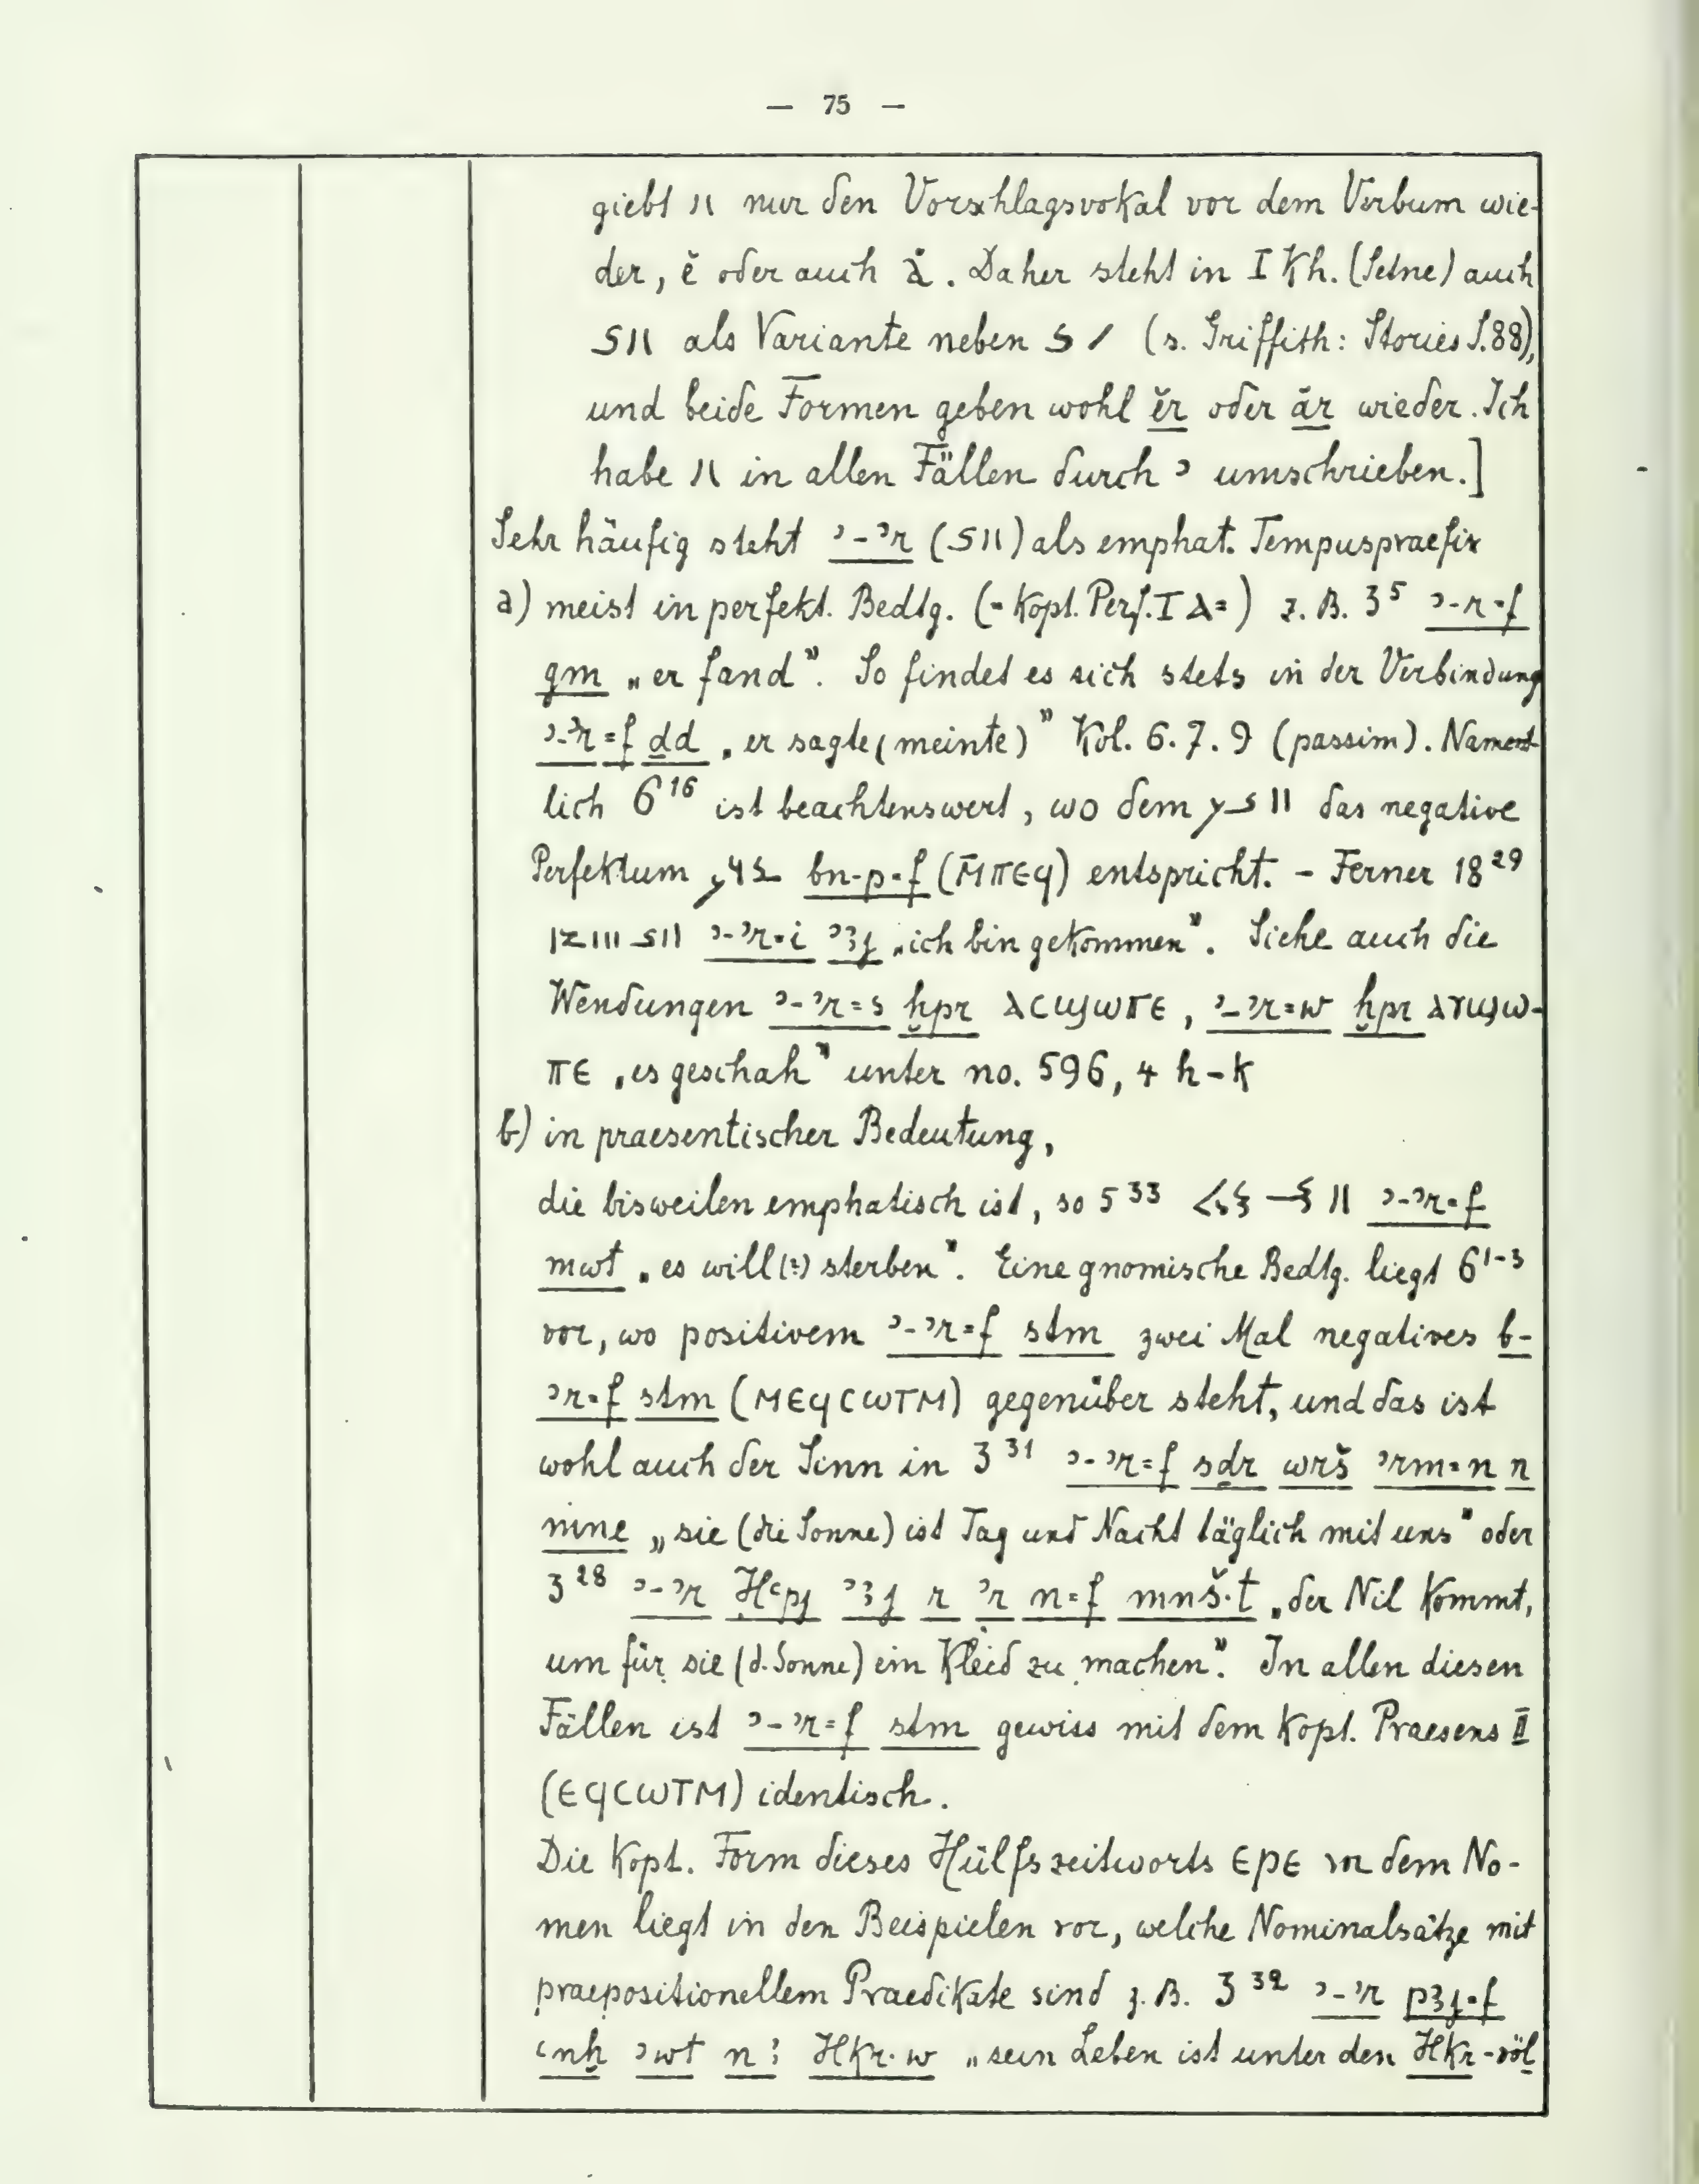 — 75 —
giebt nur den Vorschlagsvokal vor dem Verbum wie-
der, ĕ oder auch ă. Daher steht in I Kh. (Setne) auch
als Variante neben (s. Griffith: Stories S. 88),
und beide Formen geben wohl ĕr oder ăr wieder. Ich
habe in allen Fällen durch ꜣ umschrieben.]
Sehr häufig steht ꜣ-ꜣr als emphat. Tempuspraefix
a) meist in perfekt. Bedtg. (= Kopt. Perf. I ⲁ=) z. B. 3⁵ ꜣ-r=f
gm „er fand”. So findet es sich stets in der Verbindung
ꜣ-ꜣr=f dd „er sagte (meinte)” Kol. 6. 7. 9 (passim). Nament-
lich 6¹⁶ ist beachtenswert, wo dem das negative
Perfektum bn-p=f (ⲙ̄ⲡⲉϥ) entspricht. – Ferner 18²⁹
ꜣ-ꜣr=i ꜣꜣj „ich bin gekommen”. Siehe auch die
Wendungen ꜣ-ꜣr=s ḫpr ⲁⲥϣⲱⲡⲉ, ꜣ-ꜣr=w ḫpr ⲁⲩϣⲱ-
ⲡⲉ „es geschah” unter no. 596, 4 h-k
b) in praesentischer Bedeutung,
die bisweilen emphatisch ist, so 5³³ ꜣ-ꜣr=f
mwt „es will (?) sterben”. Eine gnomische Bedtg. liegt 6¹⁻³
vor, wo positivem ꜣ-ꜣr=f stm zwei Mal negatives b-
ꜣr=f stm (ⲙⲉϥⲥⲱⲧⲙ) gegenüber steht, und das ist
wohl auch der Sinn in 3³¹ ꜣ-ꜣr=f sdr wrš ꜣrm=n n
mne „sie (die Sonne) ist Tag und Nacht täglich mit uns” oder
3²⁸ ꜣ-ꜣr Ḥꜥpj ꜣꜣj r ꜣr n=f mnš.t „der Nil kommt,
um für sie (d. Sonne) ein Kleid zu machen”. In allen diesen
Fällen ist ꜣ-ꜣr=f stm gewiss mit dem Kopt. Praesens II
(ⲉϥⲥⲱⲧⲙ) identisch.
Die Kopt. Form dieses Hülfszeitworts ⲉⲣⲉ vor dem No-
men liegt in den Beispielen vor, welche Nominalsätze mit
praepositionellem Praedikate sind z. B. 3³² ꜣ-ꜣr pꜣj=f
ꜥnḫ ꜣwt nꜣ Hkr.w „sein Leben ist unter den Hkr-völ